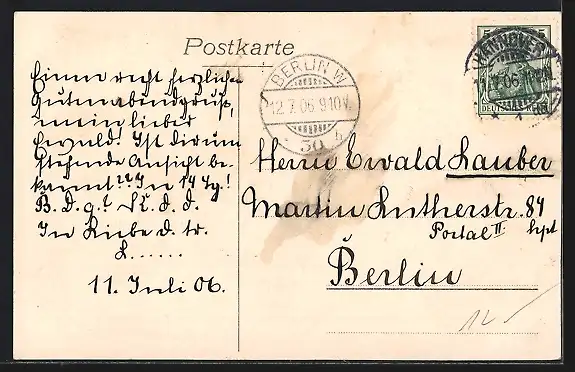 Postkarte
Einen recht herzlichen
Gutenabendgruß,
mein lieber
Ewald! Ist dir um
stehende Ansicht be-
kannt?? In 14 Tg.!
B. D. g.? K. d. d.
In Liebe d. tr.
L......
11. Juli 06.
BERLIN W.
12.7.06.9-10V.
30 b
HANNOVER
DEUTSCHES REICH
Herrn Ewald Lauber
Martin Lutherstr. 84
Portal II hpt
Berlin